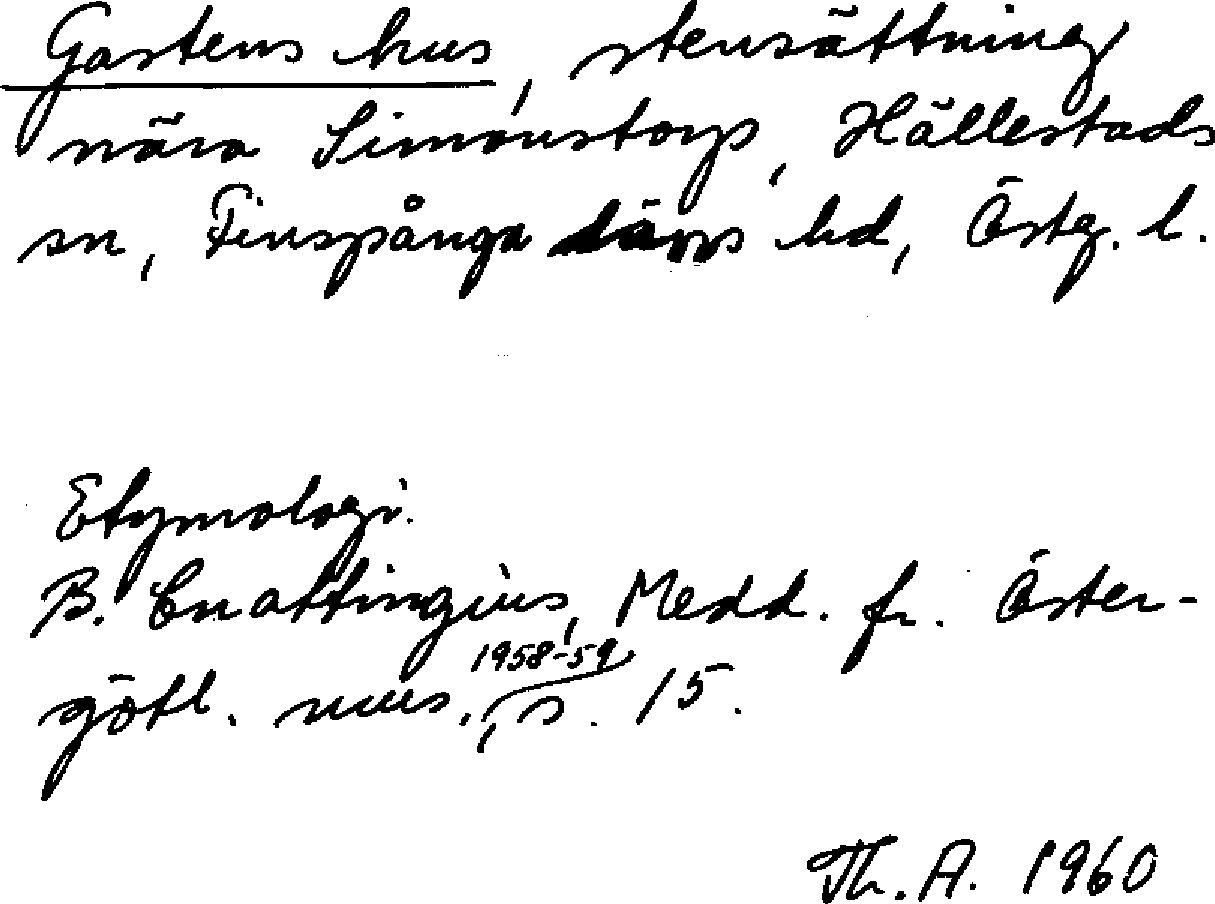 Gastens hus, stensättning
nära Simonstorp, Hällestads
sn, Finspånga läns hd, Östg. l.
Etymologi.
B. Cnattingius, Medd. fr. Öster-
götl. mus., 1958-59, s. 15.
Th. A. 1960